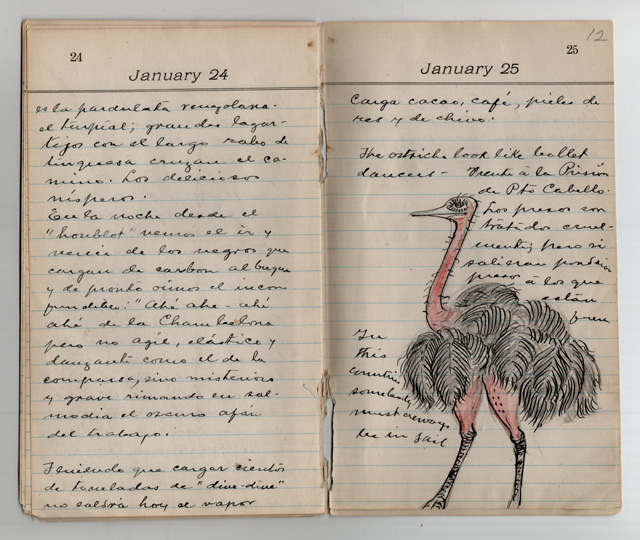 24
January 24
es la pardulata venezolana.
el turpial; grandes lagar-
tijos con el largo rabo de
turquesa cruzan el ca-
mino. Los deliciosos
nísperos.
En la noche desde el
"houblot" vemos el ir y
venir de los negros que
cargan de carbon al buque
y de pronto oimos el incon
fundible: "Ahé ahe - ahé
ahé de la Chambelona
pero no agil, elástico y
danzante como el de la
comparsa, sino misterioso
y grave rimando en sal-
modia el oscuro afán
del trabajo.
Teniendo que cargar cientos
de toneladas de "dive-dive"
no saldrá hoy el vapor
12
25
January 25
Carga cacao, café, pieles de
res y de chivo.
The ostrichs look like ballet
dancers - Frente á la Prisión
de Pto Cabello.
Los presos son
tratados cruel-
mente; pero si
salieran pondrían
presos á los que
están
fuera
In
this
countrie
somebody
must always
be in Jail